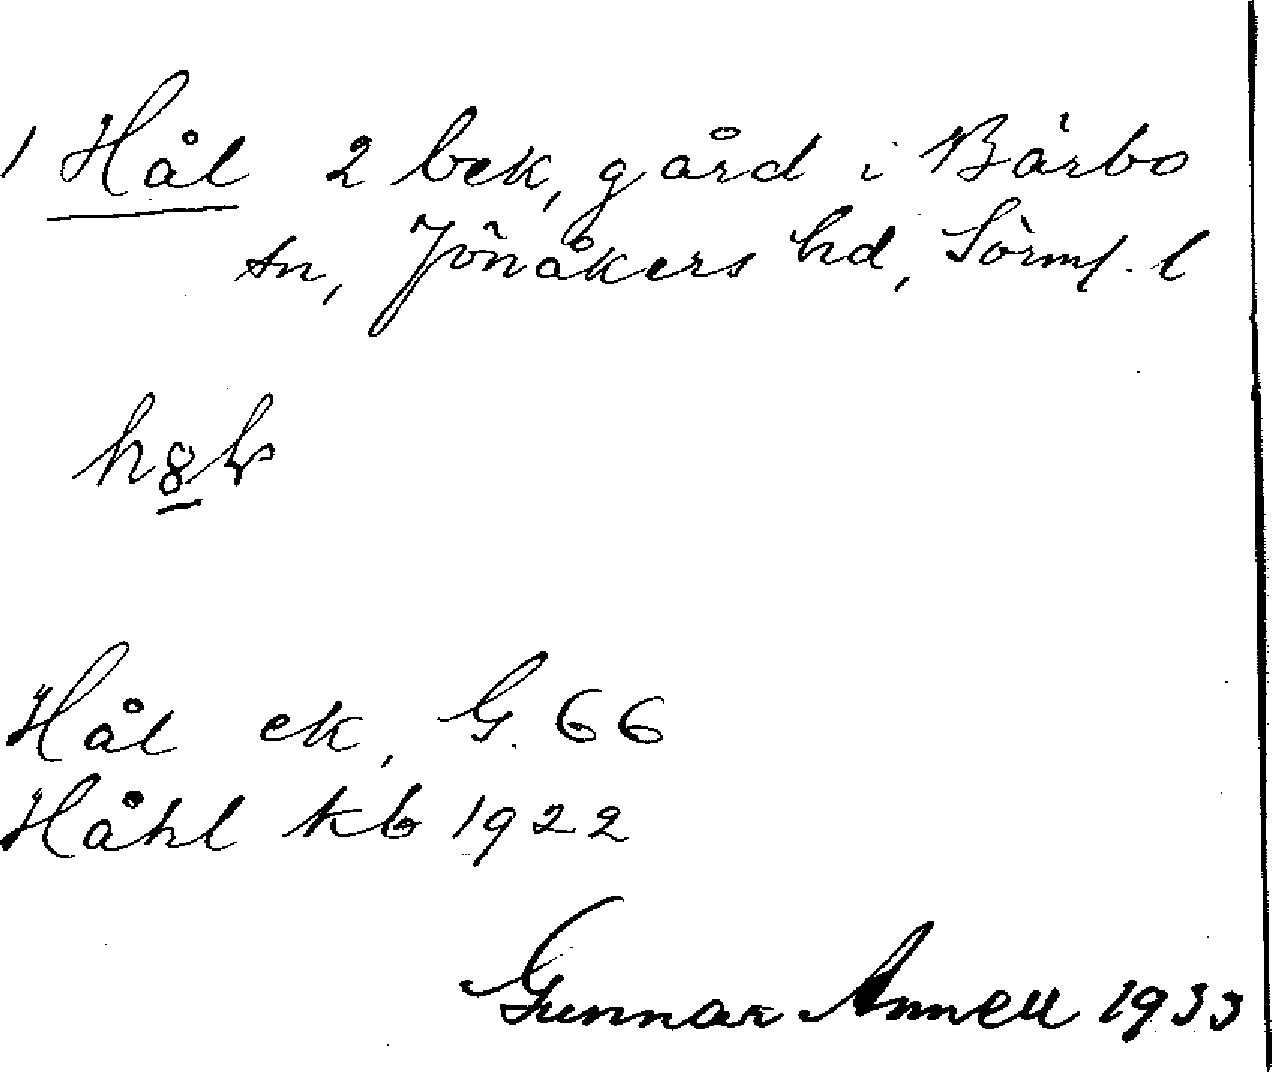 1 Hål 2 bek, gård i Bärbo
sn, Jönåkers hd, Sörml. l
Hål ek, G. 66
Håhl kb 1922
Gunnar Annell 1933